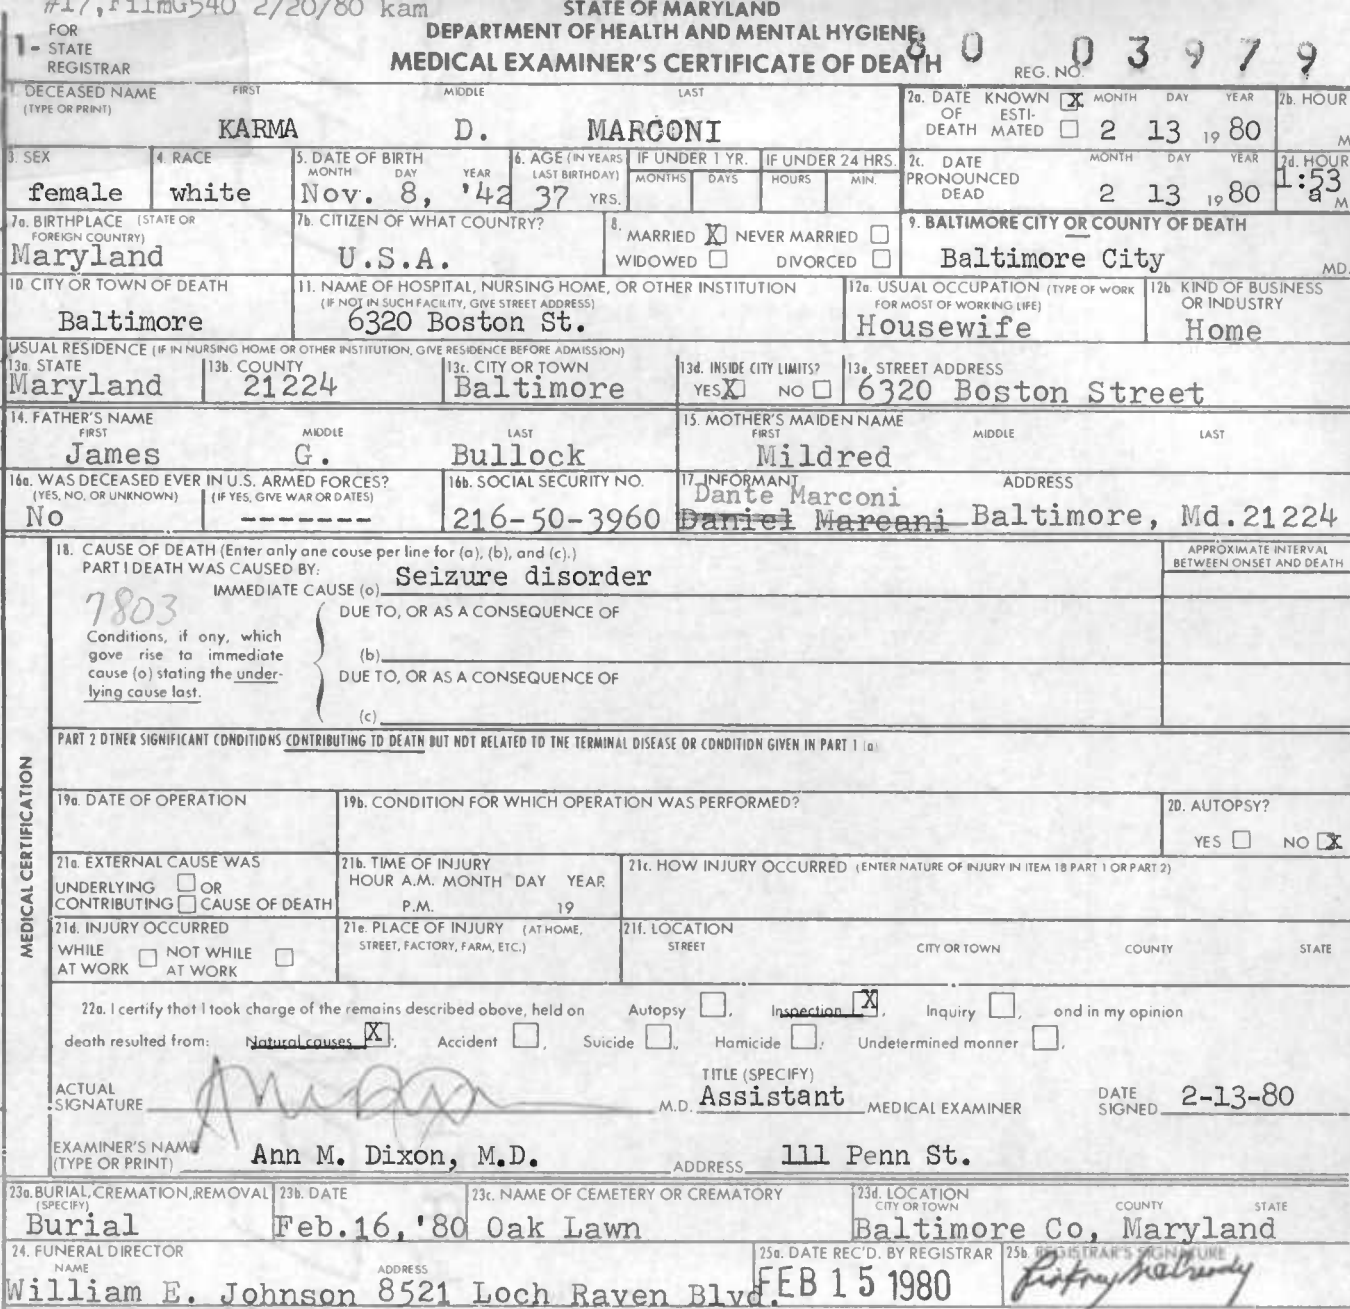 #17, FilmG540 2/20/80 kam
STATE OF MARYLAND
DEPARTMENT OF HEALTH AND MENTAL HYGIENE
MEDICAL EXAMINER'S CERTIFICATE OF DEATH
1- FOR STATE REGISTRAR
REG. NO. 80 03979
1. DECEASED NAME (TYPE OR PRINT) FIRST MIDDLE LAST
KARMA D. MARCONI
2a. DATE OF DEATH KNOWN X ESTIMATED MONTH DAY YEAR
2 13 1980
2b. HOUR
M
3. SEX
female
4. RACE
white
5. DATE OF BIRTH MONTH DAY YEAR
Nov. 8, '42
6. AGE (IN YEARS LAST BIRTHDAY)
37 YRS.
IF UNDER 1 YR. MONTHS DAYS
IF UNDER 24 HRS. HOURS MIN.
2c. DATE PRONOUNCED DEAD MONTH DAY YEAR
2 13 1980
2d. HOUR
1:53 a M
7a. BIRTHPLACE (STATE OR FOREIGN COUNTRY)
Maryland
7b. CITIZEN OF WHAT COUNTRY?
U.S.A.
8. MARRIED X NEVER MARRIED
WIDOWED DIVORCED
9. BALTIMORE CITY OR COUNTY OF DEATH
Baltimore City MD.
10. CITY OR TOWN OF DEATH
Baltimore
11. NAME OF HOSPITAL, NURSING HOME, OR OTHER INSTITUTION
(IF NOT IN SUCH FACILITY, GIVE STREET ADDRESS)
6320 Boston St.
12a. USUAL OCCUPATION (TYPE OF WORK FOR MOST OF WORKING LIFE)
Housewife
12b. KIND OF BUSINESS OR INDUSTRY
Home
USUAL RESIDENCE (IF IN NURSING HOME OR OTHER INSTITUTION, GIVE RESIDENCE BEFORE ADMISSION)
13a. STATE
Maryland
13b. COUNTY
21224
13c. CITY OR TOWN
Baltimore
13d. INSIDE CITY LIMITS?
YES X NO
13e. STREET ADDRESS
6320 Boston Street
14. FATHER'S NAME FIRST MIDDLE LAST
James G. Bullock
15. MOTHER'S MAIDEN NAME FIRST MIDDLE LAST
Mildred
16a. WAS DECEASED EVER IN U.S. ARMED FORCES?
(YES, NO, OR UNKNOWN) (IF YES, GIVE WAR OR DATES)
No -------
16b. SOCIAL SECURITY NO.
216-50-3960
17. INFORMANT ADDRESS
Dante Marconi
Daniel Marcani Baltimore, Md.21224
MEDICAL CERTIFICATION
18. CAUSE OF DEATH (Enter only one couse per line for (a), (b), and (c).)
PART I DEATH WAS CAUSED BY:
IMMEDIATE CAUSE (o) Seizure disorder
APPROXIMATE INTERVAL BETWEEN ONSET AND DEATH
7803
Conditions, if ony, which
gove rise to immediate
cause (o) stating the under-
lying cause last.
DUE TO, OR AS A CONSEQUENCE OF
(b)
DUE TO, OR AS A CONSEQUENCE OF
(c)
PART 2 OTNER SIGNIFICANT CONDITIONS CONTRIBUTING TO DEATN BUT NDT RELATED TO TNE TERMINAL DISEASE OR CDNDITION GIVEN IN PART 1 (a)
19a. DATE OF OPERATION
19b. CONDITION FOR WHICH OPERATION WAS PERFORMED?
20. AUTOPSY?
YES NO X
21a. EXTERNAL CAUSE WAS
UNDERLYING OR
CONTRIBUTING CAUSE OF DEATH
21b. TIME OF INJURY
HOUR A.M. MONTH DAY YEAR
P.M. 19
21c. HOW INJURY OCCURRED (ENTER NATURE OF INJURY IN ITEM 18 PART 1 OR PART 2)
21d. INJURY OCCURRED
WHILE AT WORK NOT WHILE AT WORK
21e. PLACE OF INJURY (AT HOME, STREET, FACTORY, FARM, ETC.)
21f. LOCATION
STREET CITY OR TOWN COUNTY STATE
22a. I certify that I took charge of the remains described above, held on Autopsy , Inspection X , Inquiry , ond in my opinion
death resulted from: Natural couses X , Accident , Suicide , Homicide , Undetermined monner .
ACTUAL SIGNATURE M.D.
TITLE (SPECIFY)
Assistant MEDICAL EXAMINER
DATE SIGNED 2-13-80
EXAMINER'S NAME (TYPE OR PRINT) Ann M. Dixon, M.D. ADDRESS 111 Penn St.
23a. BURIAL, CREMATION, REMOVAL (SPECIFY)
Burial
23b. DATE
Feb.16,'80
23c. NAME OF CEMETERY OR CREMATORY
Oak Lawn
23d. LOCATION CITY OR TOWN COUNTY STATE
Baltimore Co, Maryland
24. FUNERAL DIRECTOR NAME ADDRESS
William E. Johnson 8521 Loch Raven Blvd.
25a. DATE REC'D. BY REGISTRAR
FEB 15 1980
25b. REGISTRAR'S SIGNATURE